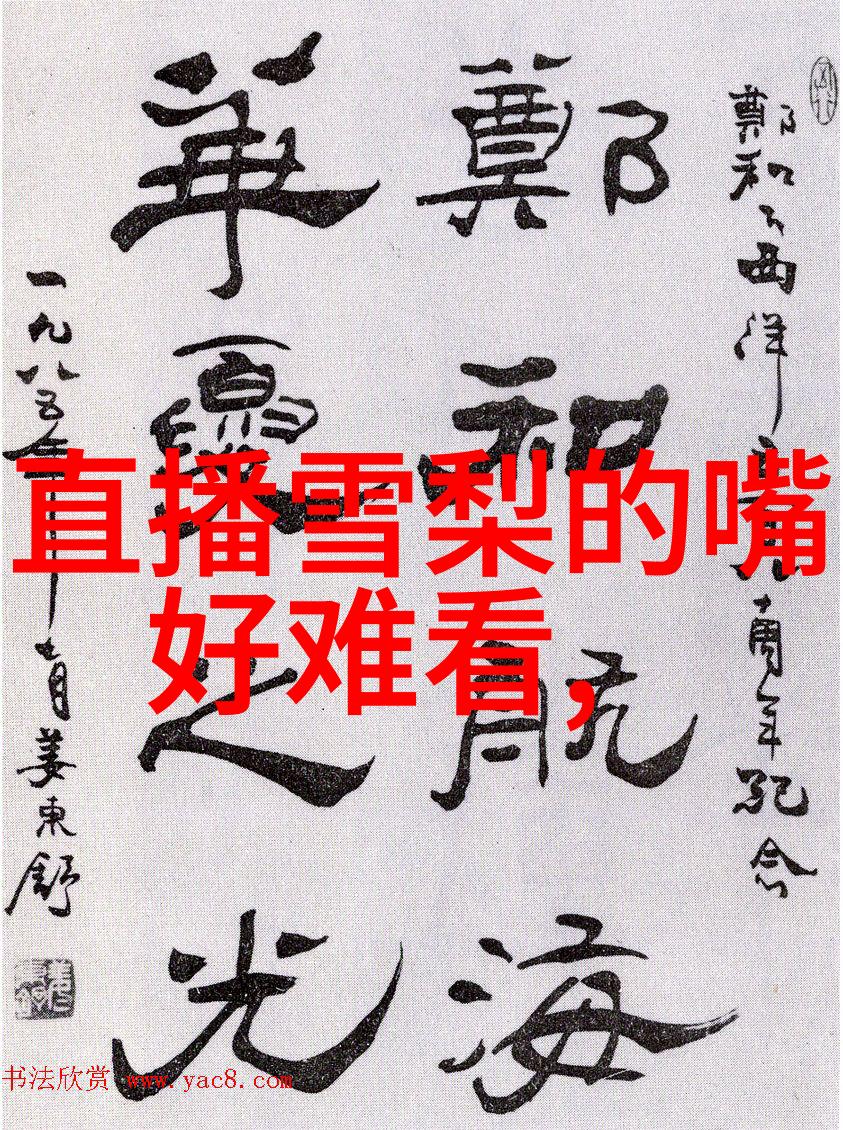 鄭和下西洋
周年紀念
鄭和航海
華夏之光
一九八五年
姜東舒
直播雪梨的嘴
好难看,
书法欣赏 www.yac8.com